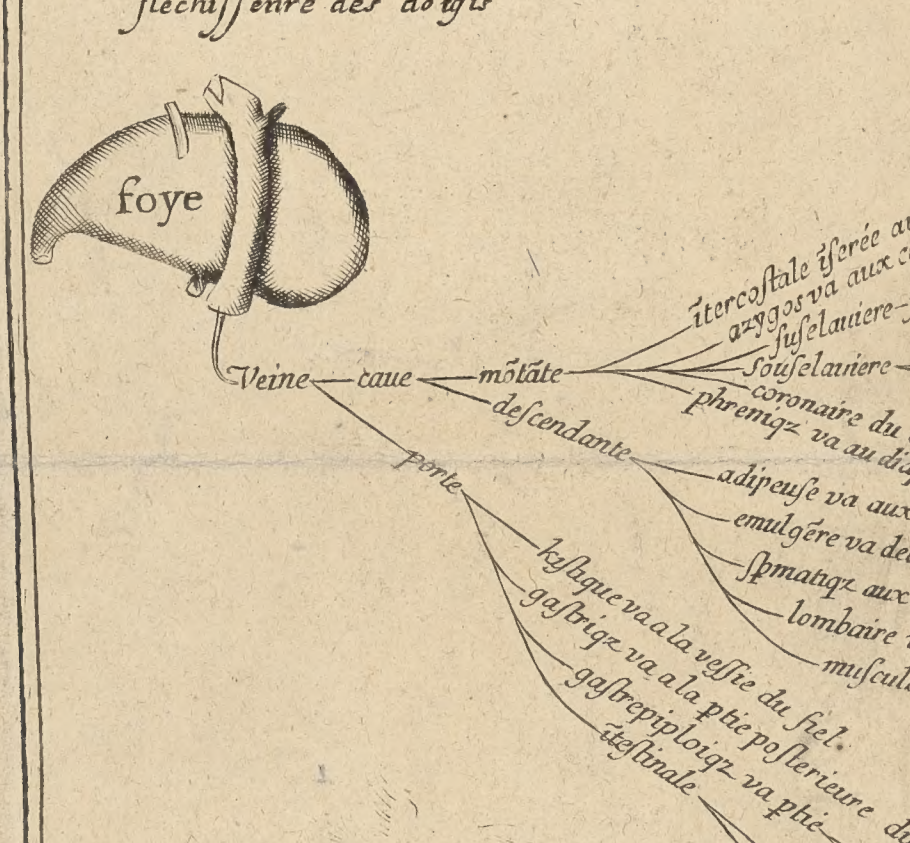 fléchissent des doigts
foye
Veine
caue
mõtãte
ĩtercostale ĩserée au
azygos va aux co
suselauiere
souselauiere
coronaire du
phreniqz va au dia
descendante
adipeuse va aux
emulgẽre va de
spmatiqz aux
lombaire
muscul
porte
kistique va a la vessie du fiel.
gastriqz va a la ptie posterieure du
gastrepiploiqz va ptie
ĩtestinale